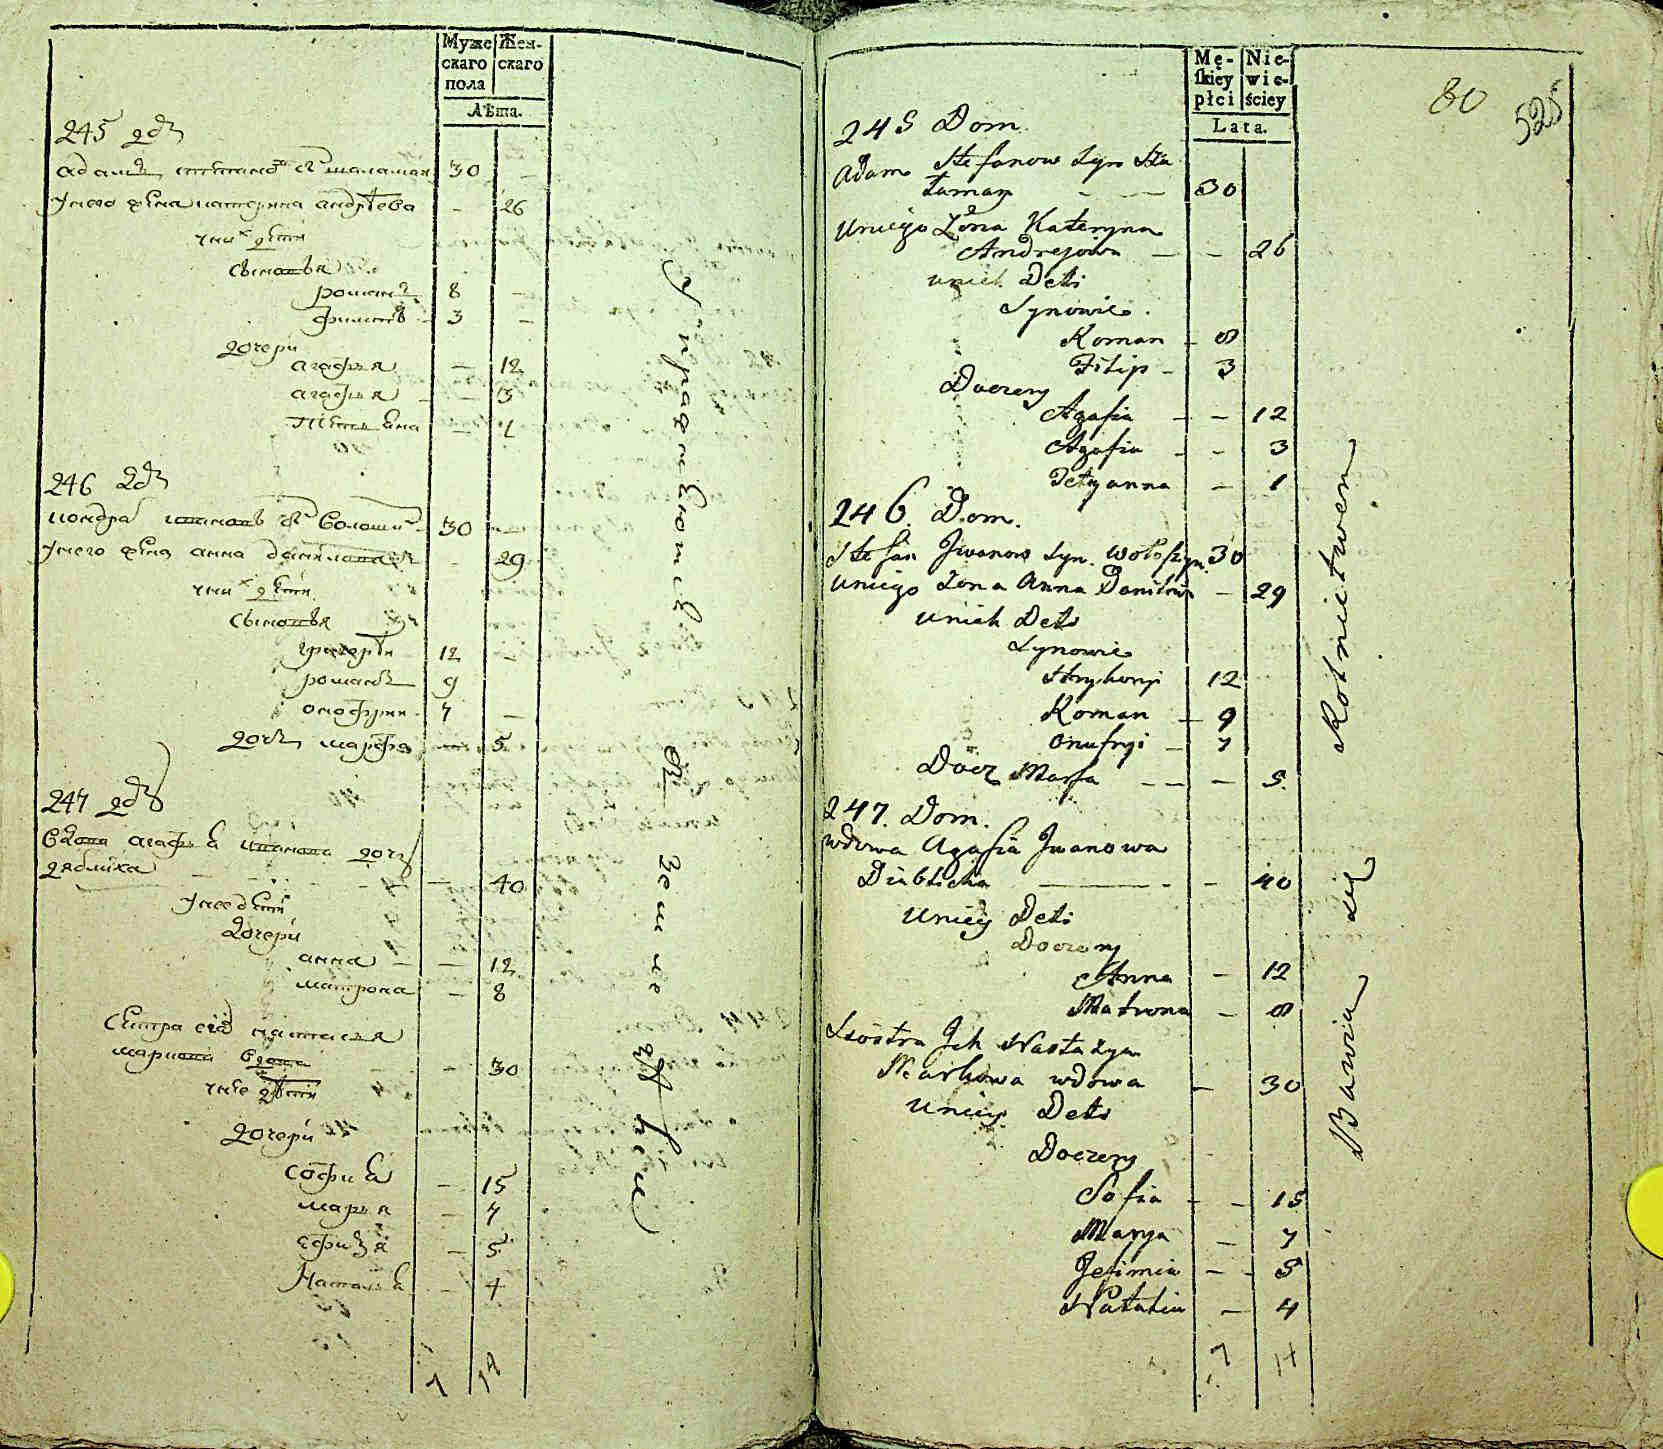 Муже
скаго
пола
Жен-
скаго
Лѣта.
245 дом
адамъ степановъ сынъ шаламай 30 —
у него жена катерина андрѣева — 26
у них дети
сыновья
романъ 8 —
филипъ 3 —
дочери
агафья — 12
агафья — 3
тетьяна — 1
246 дом
иванов сын волошин 30 —
у него жена анна данилова — 29
у них дети
сыновья
григорѣи 12 —
романъ 9
онофрии 7 —
дочь марфа — 5
247 дом
вдова агафья иванова дочь
дяблиха — 40
у нее дети
дочери
анна — — 12
матрона — 8
сестра настасья
маркова вдова — 30
у нее дети
дочери
софия — 15
марья — 7
ефимья — 5
Наталья — 4
7 14
Упражняются в земледѣлии
Mę-
skiey
płci
Nie-
wie-
ściey
Lata.
80
525
245 Dom.
Adam Stefanow Syn Sza
łamay — — 30
Uniego Zona Kateryna
Andrejowa — — 26
unich Deti
Synowie.
Roman — 8
Filip — 3
Doczery
Agafia — — 12
Agafia — — 3
Tetyanna — 1
246. Dom.
Stefan Jwanow Syn. Wołoszyn. 30
Uniego Zona Anna Daniłowa — 29
Unich Deti
Synowie
Hryhory 12
Roman — 9
Onufryi — 7
Docz Marfa — — — 5.
247. Dom.
Wdowa Agafia Jwanowa
Diablicha — — 40
Uniey Deti
Doczery
Anna — 12
Matrona — 8
Siostra Jch Nastazya
Markowa wdowa — 30
Uniey Deti
Doczery
Sofia — — 15
Marya — 7
Jefimia — — 5
Natalia — 4
7 14
Bawia się Rolnictwem